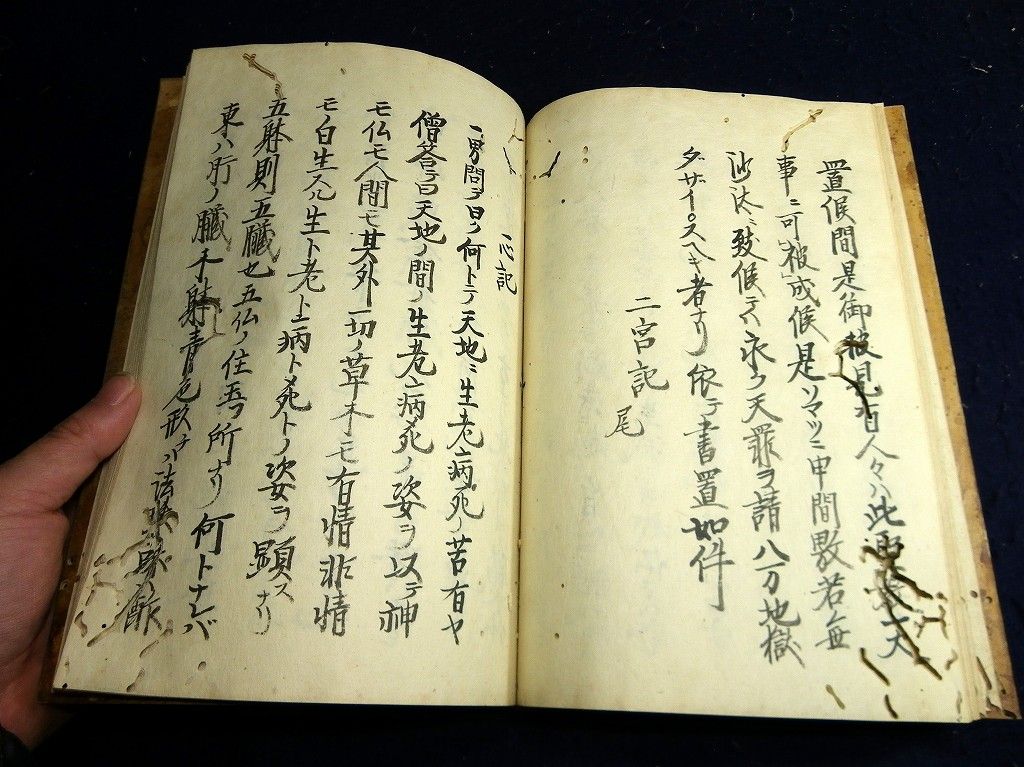 置候間是御披見有人々ハ此
事ニ可被成候是ソマツニ申間敷若無
沙汰ニ致候テハ永ク天罪ヲ請八万地獄
ダザイスヘキ者ナリ依テ書置如件
二宮記尾
一心記
一、男問ヲ曰ク何トテ天地ニ生老病死ノ苦有ヤ
僧答テ曰天地ノ間ノ生老病死ノ姿ヲ以テ神
モ仏モ人間モ其外一切ノ草木モ有情非情
モノ白生スル生ト老ト病ト死トノ姿ヲ顕スナリ
五躰則五臓也五仏ノ住玉フ所ナリ何トナレバ
東ハ肝ノ臓木躰青色形ナハ法